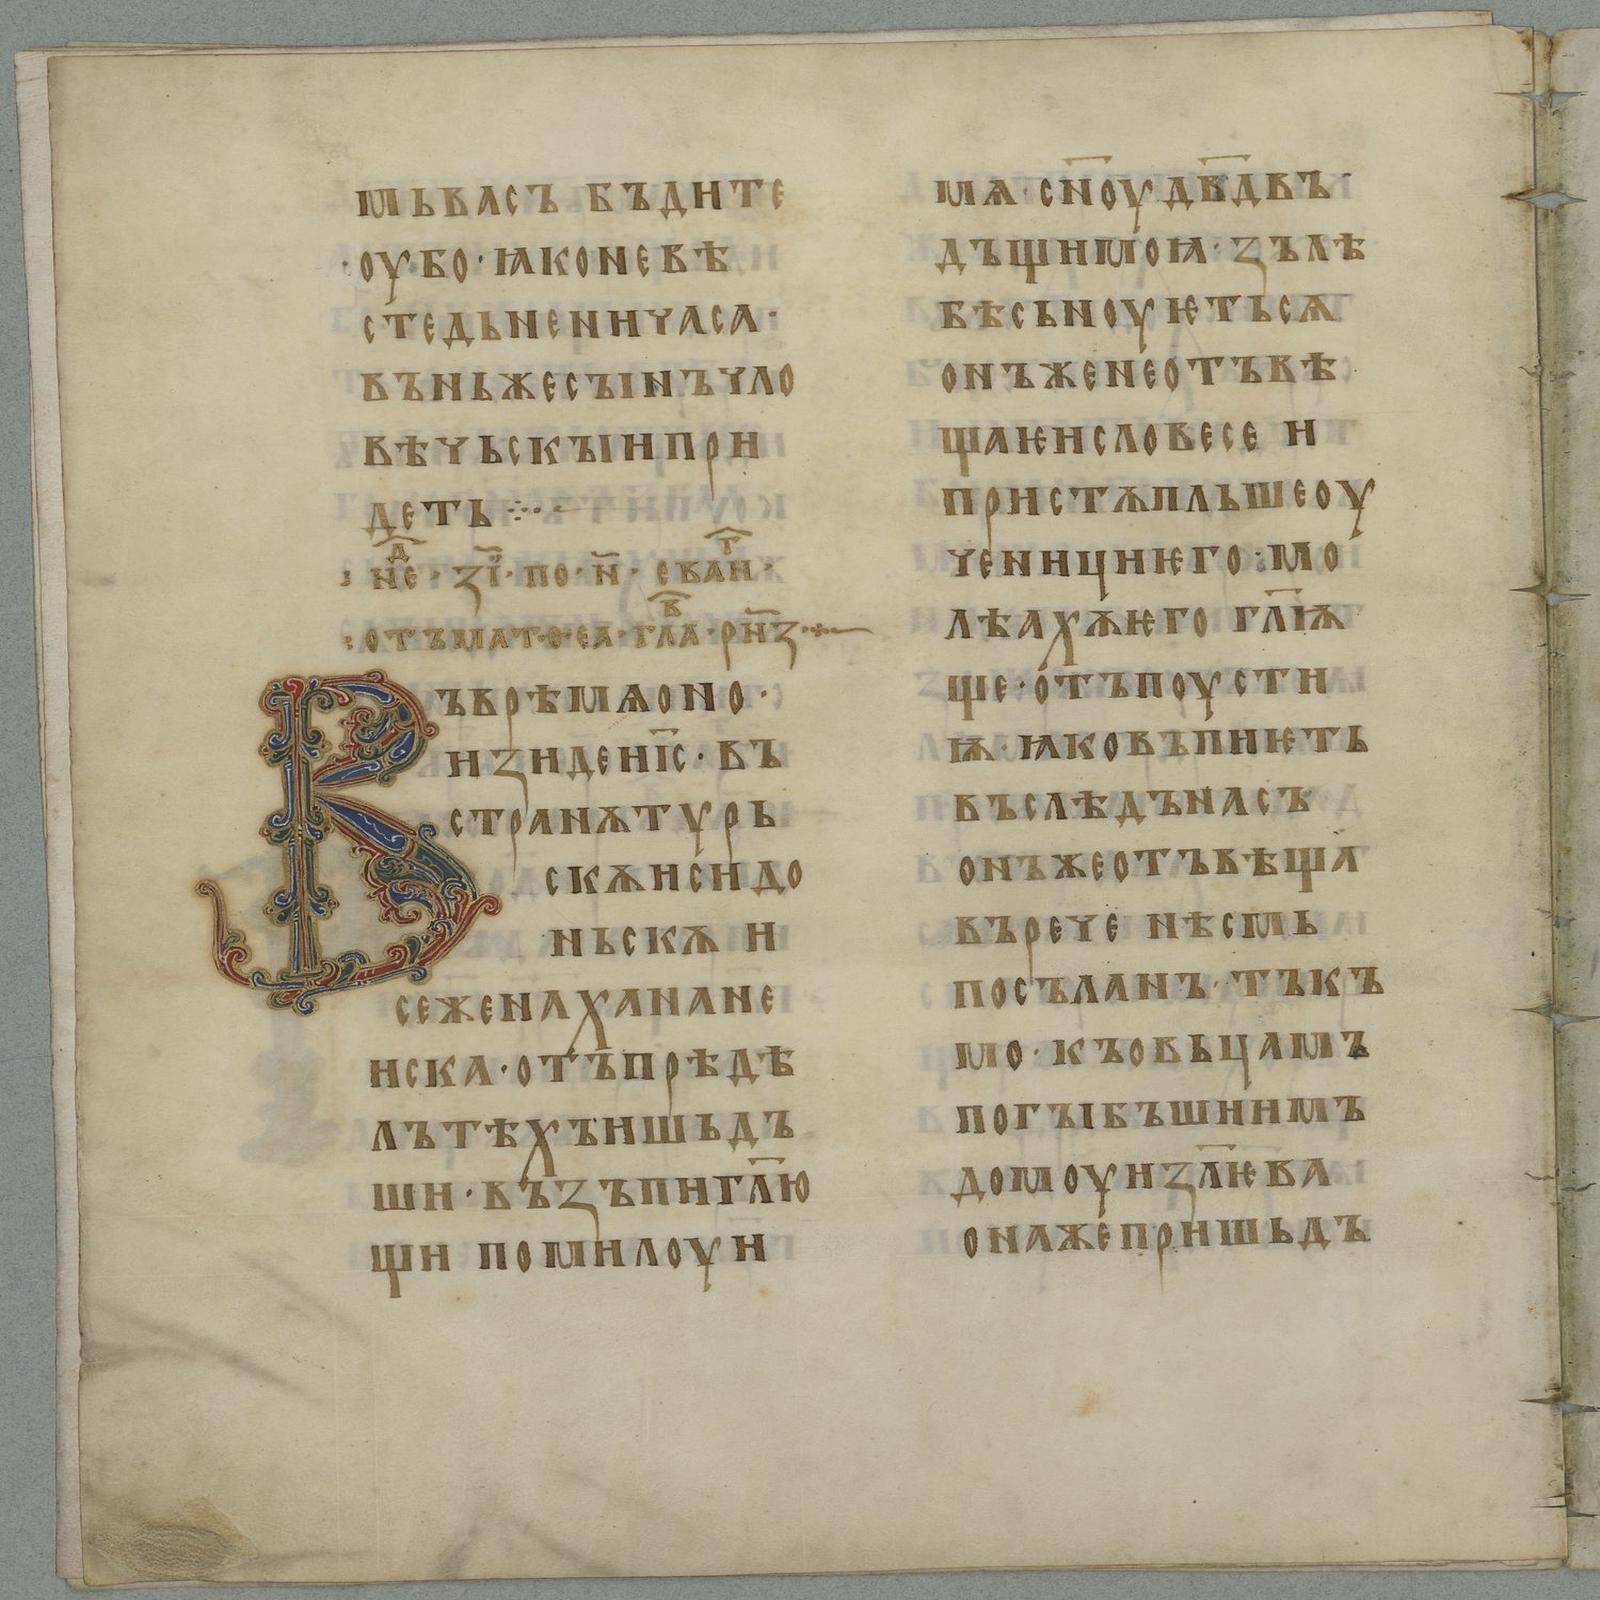 мьвасъ бъдите
·оубо·ꙗконевѣ
стедьнениѵаса·
въньжесꙑнъѵло
вѣѵьскꙑипри
деть ⁘·
нед҇ · зı҃·по·н҃·еваг҇н·
:отъмат·ѳ·еа·глав҇а·рн҃з·
Въврѣмѧоно·
изидениı҃с·въ
странѫтурь
скѫисидо
ньскѫ и
сеженаханане
иска·отъпрѣдѣ
лътѣхъишьдъ
ши·възъпигл҃ю
щи помилоуи
мѧ·сн҃оудв҃двъ
дъщимоꙗ·зълѣ
бѣсьноуѥтьсѧ
онъженеотъвѣ
щаѥисловесе и
пристѫпльшеоу
ѵеницииѥго:мо
лѣахѫѥго гл҃ıѫ
ще·отъпоусти
ıѫ·ꙗковъпиѥть
въслѣдънасъ
онъжеотъвѣща
въреѵе нѣсмь
посъланъ·тъкъ
мо·къовьцамъ
погꙑбъшиимъ
домоуизл҃ѥва
онажепришьдъ